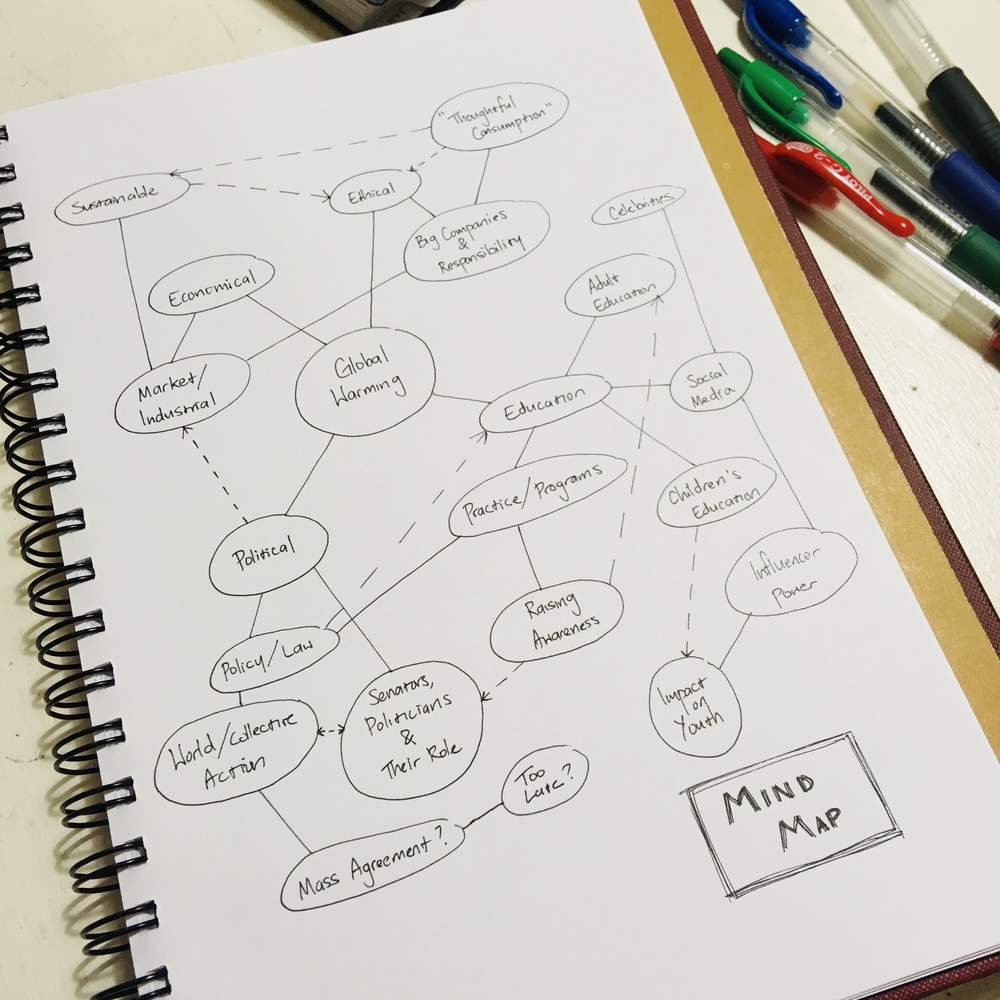 "Thoughtful
Consumption"
Sustainable
Ethical
Big Companies
&
Responsibility
Celebrities
Economical
Adult
Education
Market/
Industrial
Global
Warming
Education
Social
Media
Practice/Programs
Children's
Education
Political
Influencer
Power
Raising
Awareness
Policy/Law
World/Collective
Action
Senators,
Politicians
&
Their Role
Impact
on
Youth
Too
Late?
Mass Agreement?
MIND
MAP
PILOT G-2